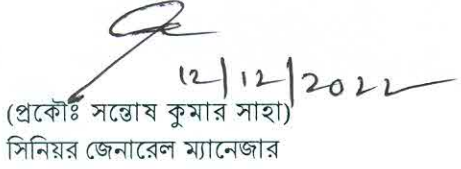 12/12/2022
(প্রকৌঃ সন্তোষ কুমার সাহা)
সিনিয়র জেনারেল ম্যানেজার